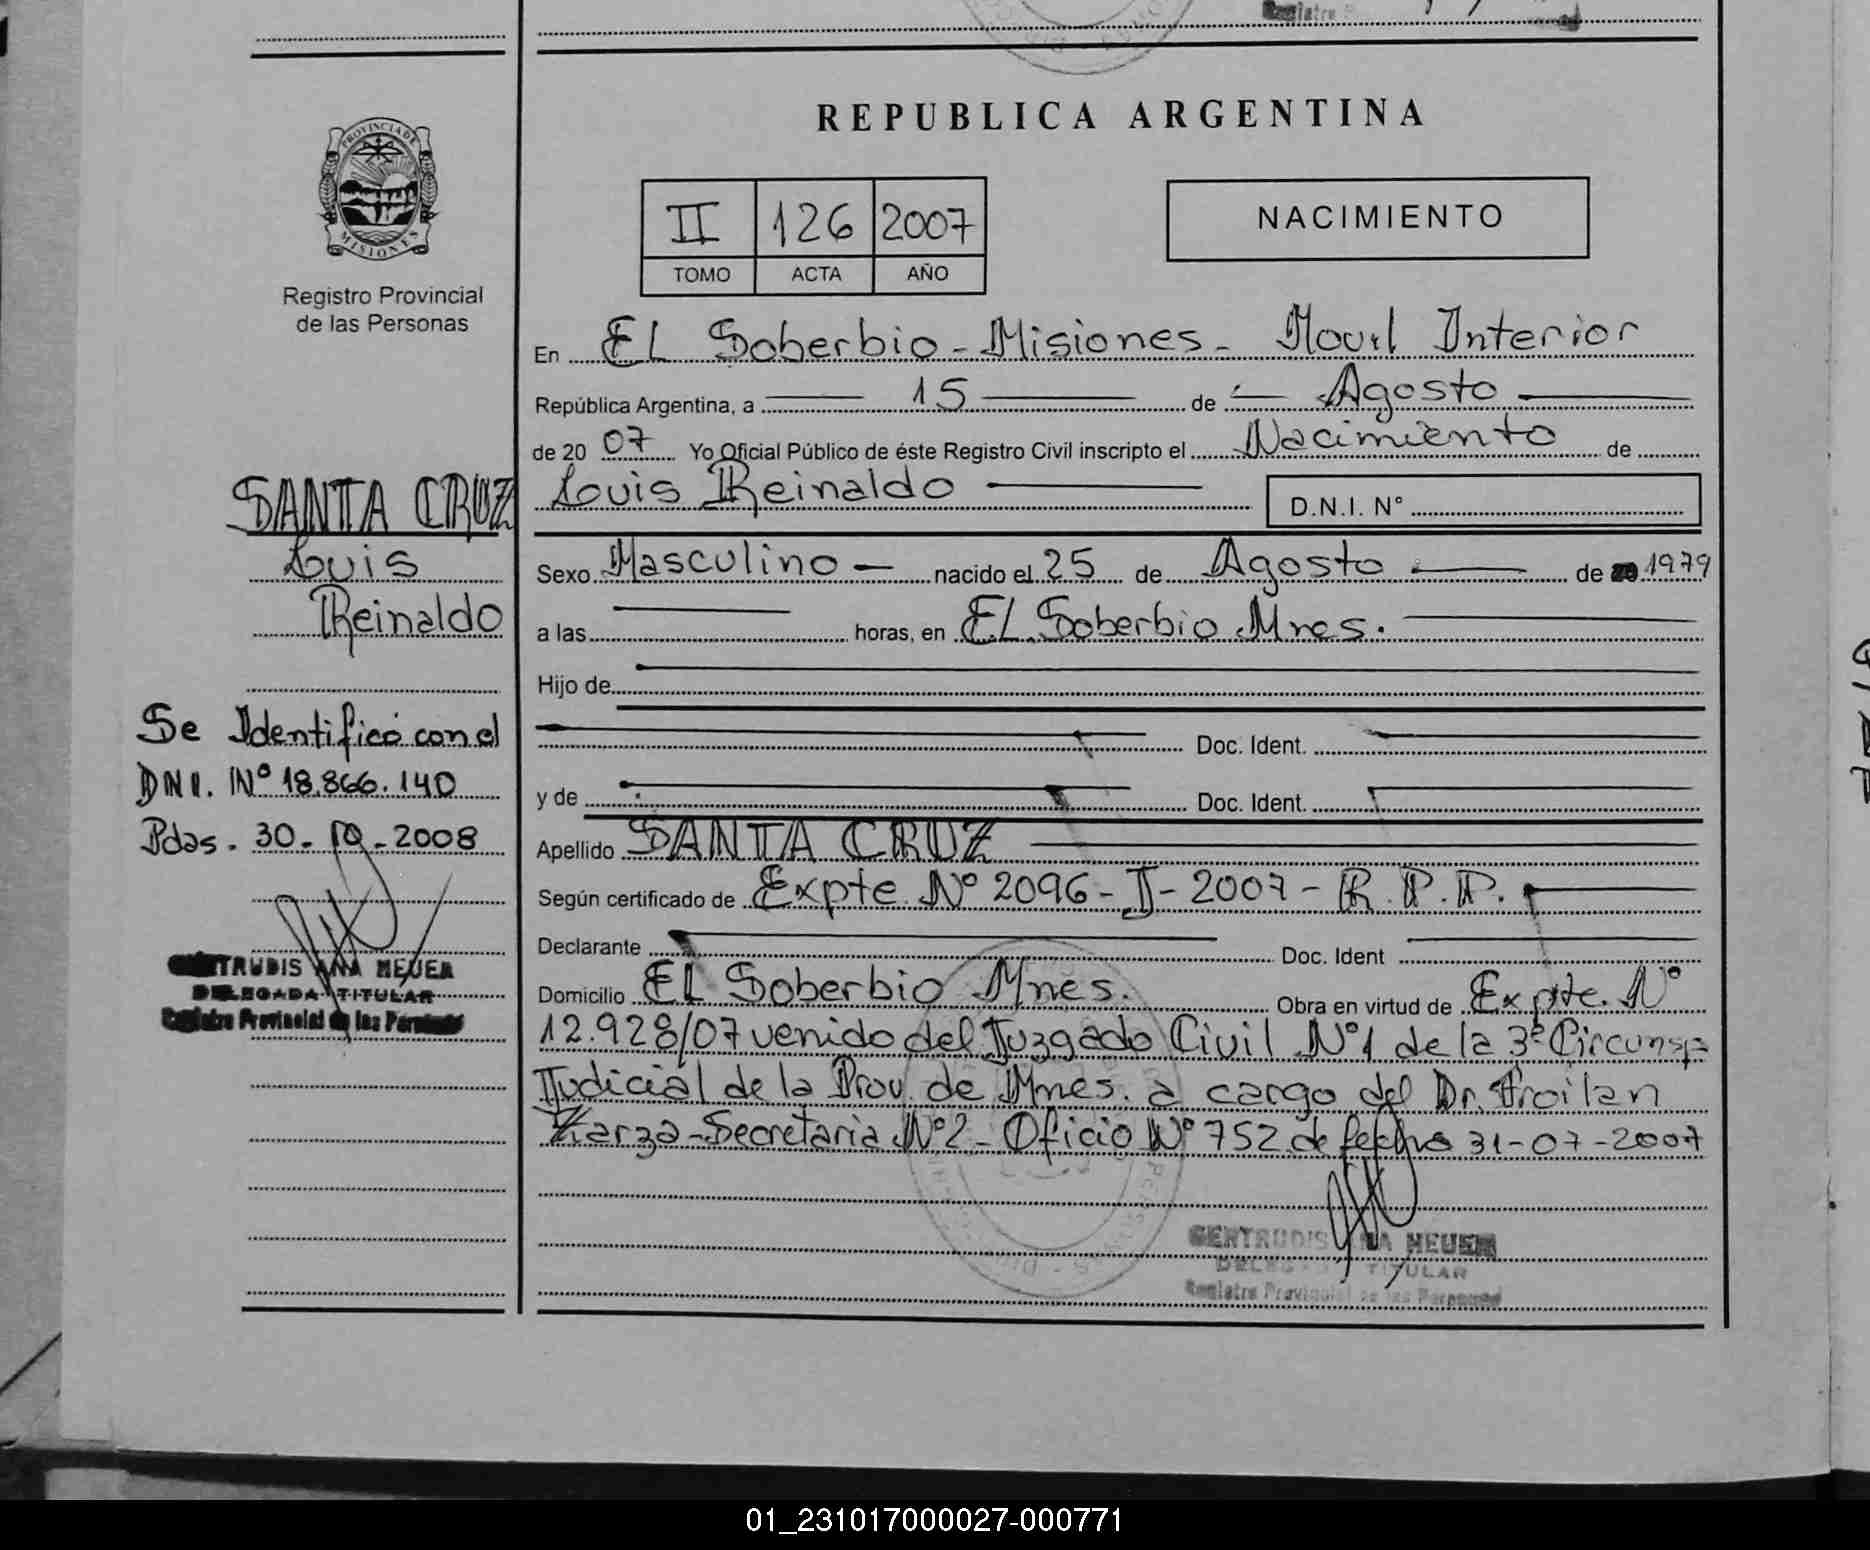 REPUBLICA ARGENTINA
PROVINCIA DE
MISIONES
Registro Provincial
de las Personas
II 126 2007
TOMO ACTA AÑO
NACIMIENTO
En EL Soberbio - Misiones - Movil Interior
República Argentina, a 15 de Agosto
de 20 07 Yo Oficial Público de éste Registro Civil inscripto el Nacimiento de
Luis Reinaldo D.N.I. N°
Sexo Masculino nacido el 25 de Agosto de 1979
a las horas, en EL Soberbio Mnes.
Hijo de
Doc. Ident.
y de Doc. Ident.
Apellido SANTA CRUZ
Según certificado de Expte. N° 2096 - I - 2007 - R.P.P.
Declarante Doc. Ident
Domicilio EL Soberbio Mnes. Obra en virtud de Expte. N°
12.928/07 venido del Juzgado Civil N°1 de la 3ª Circunsp.
Judicial de la Prov. de Mnes. a cargo del Dr. Froilan
Zarza - Secretaria N°2 - Oficio N° 752 de fecha 31-07-2007
GERTRUDIS ANA HEUER
DELEGADA TITULAR
Registro Provincial de las Personas
SANTA CRUZ
Luis
Reinaldo
Se Identificó con el
DNI. N° 18.866.140
Pdas. 30-10-2008
GERTRUDIS ANA HEUER
DELEGADA TITULAR
Registro Provincial de las Personas
01_231017000027-000771